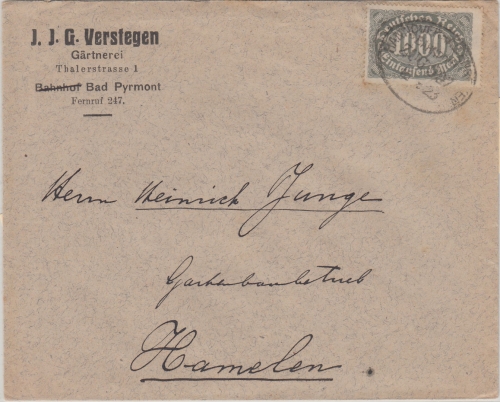 J. J. G. Verstegen
Gärtnerei
Thalerstrasse 1
Bahnhof Bad Pyrmont
Fernruf 247.
Deutsches Reich
1000
Eintausend Mark
Herrn Heinrich Junge
Gartenbaubetrieb
Hamelen